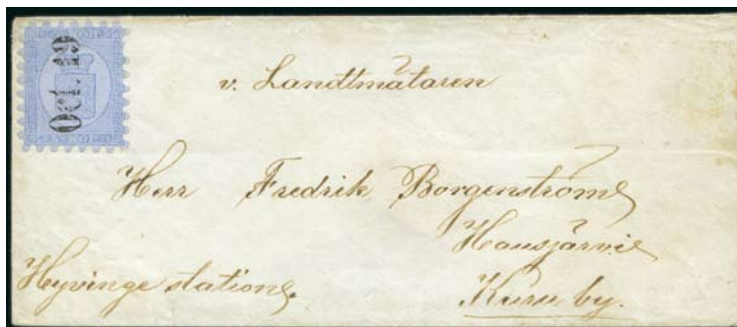 OCT. 19
v. Landtmätaren
Herr Fredrik Borgenström
Hausjärvi
Hyvinge station.
Kuru by.